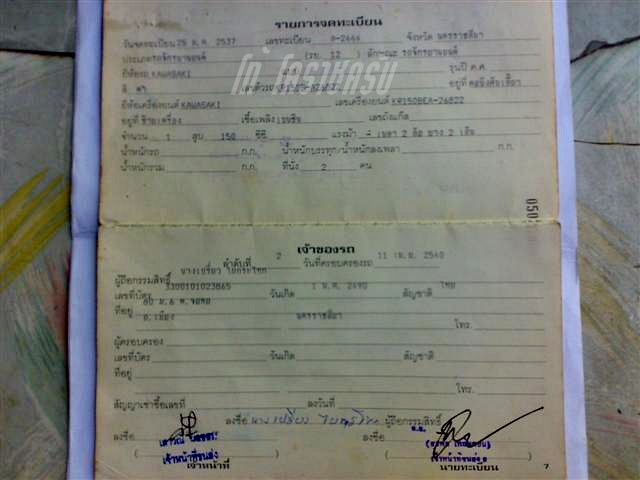 รายการจดทะเบียน
วันจดทะเบียน 25 พ.ค. 2537 เลขทะเบียน 8-2444 จังหวัด นครราชสีมา
ประเภทรถจักรยานยนต์ (รย. 12) ลักษณะ รถจักรยานยนต์
ยี่ห้อรถ KAWASAKI รุ่นปี ค.ศ.
สี ดำ เลขตัวรถ อยู่ที่ คอบังคับเลี้ยว
โก้ โคราชครับ
ยี่ห้อเครื่องยนต์ KAWASAKI เลขเครื่องยนต์ KR150BEA-26822
อยู่ที่ ข้างเครื่อง เชื้อเพลิง เบนซิน เลขถังแก๊ส
จำนวน 1 สูบ 150 ซีซี แรงม้า - เพลา 2 ล้อ ยาง 2 เส้น
น้ำหนักรถ ก.ก. น้ำหนักบรรทุก/น้ำหนักลงเพลา ก.ก.
น้ำหนักรวม ก.ก. ที่นั่ง 2 คน
050
เจ้าของรถ
ลำดับที่ 2 วันที่ครอบครองรถ 11 เม.ย. 2540
ผู้ถือกรรมสิทธิ์
เลขที่บัตร 3300101023865 วันเกิด 1 ม.ค. 2490 สัญชาติ ไทย
ที่อยู่ 80 ม.6 ต.จอหอ
อ.เมือง นครราชสีมา
โทร.
ผู้ครอบครอง
เลขที่บัตร วันเกิด สัญชาติ
ที่อยู่
โทร.
สัญญาเช่าซื้อเลขที่ ลงวันที่
ลงชื่อ ผู้ถือกรรมสิทธิ์
ลงชื่อ ลงชื่อ
เจ้าหน้าที่ขนส่ง เจ้าหน้าที่ขนส่ง
เจ้าหน้าที่ นายทะเบียน
7